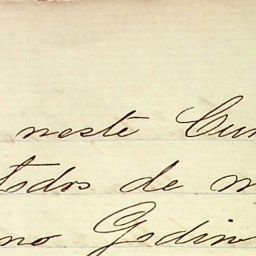 neste Cur
todos de m
no Godin